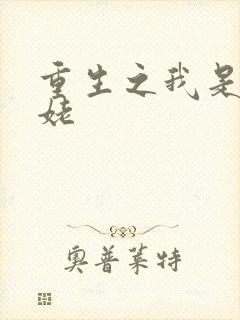 重生之我是
姥
奥普莱特